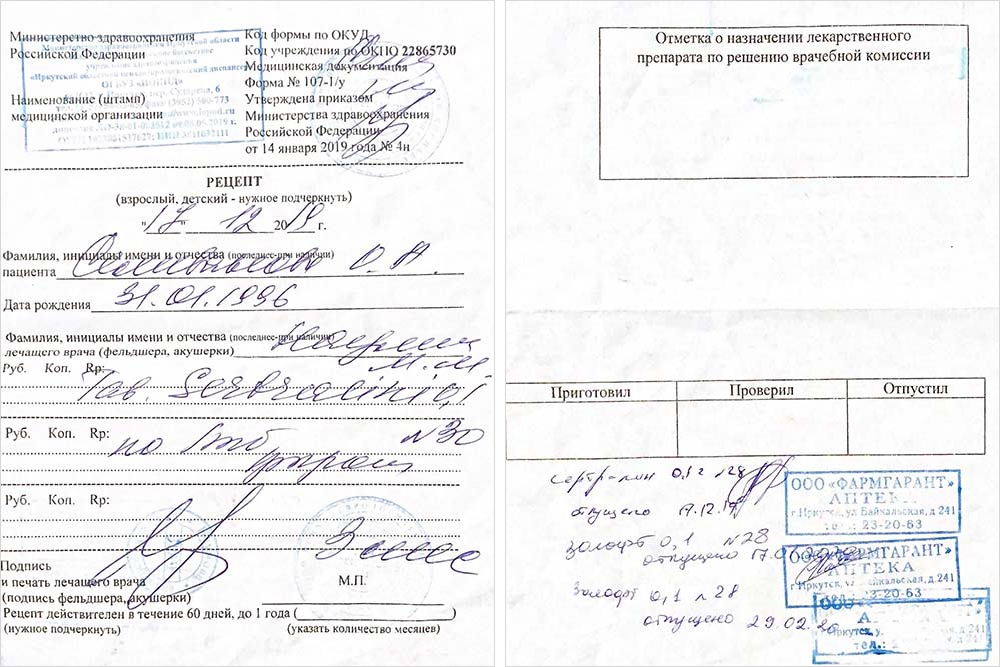 Министерство здравоохранения
Российской Федерации
Наименование (штамп)
медицинской организации
Код формы по ОКУД
Код учреждения по ОКПО 22865730
Медицинская документация
Форма № 107-1/у
Утверждена приказом
Министерства здравоохранения
Российской Федерации
от 14 января 2019 года № 4н
РЕЦЕПТ
(взрослый, детский - нужное подчеркнуть)
"17" 12 2019 г.
Фамилия, инициалы имени и отчества (последнее-при наличии)
пациента О.
Дата рождения 31.01.1996
Фамилия, инициалы имени и отчества (последнее-при наличии)
лечащего врача (фельдшера, акушерки)
М.М
Руб. Коп. Rp:
Tab. Sertralini 0,1
Руб. Коп. Rp:
по 1 таб N30
утром
Руб. Коп. Rp:
Подпись
и печать лечащего врача
М.П.
(подпись фельдшера, акушерки)
Рецепт действителен в течение 60 дней, до 1 года ( )
(нужное подчеркнуть) (указать количество месяцев)
Отметка о назначении лекарственного
препарата по решению врачебной комиссии
Приготовил Проверил Отпустил
сертралин 0,1 №28
отпущено 17.12.19
золофт 0,1 №28
отпущено 17.0
золофт 0,1 №28
отпущено 29.02.20
ООО «ФАРМГАРАНТ»
АПТЕКА
г.Иркутск, ул Байкальская, д 241
тел.: 23-20-63
ООО «ФАРМГАРАНТ»
АПТЕКА
Иркутск, ул. Байкальская, д.241
тел.: 23-20-63
ООО
Иркутск, у
тел.: